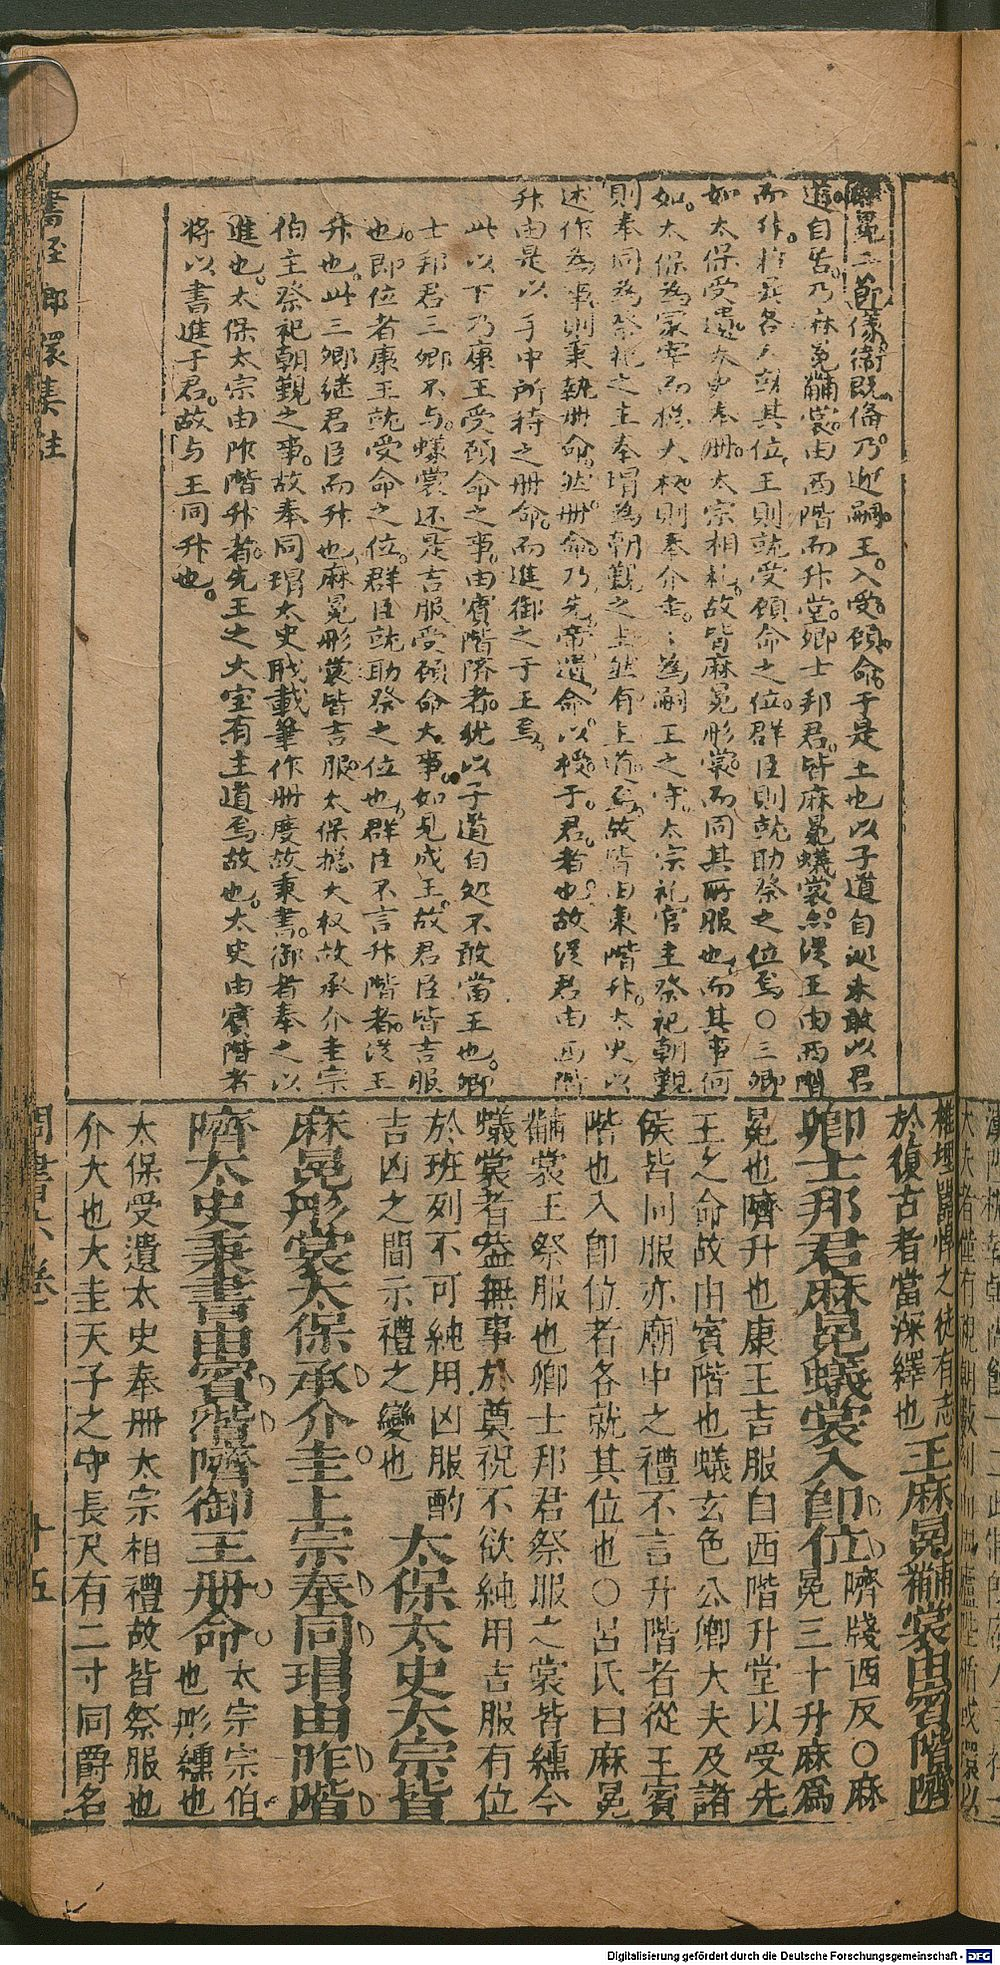 麻冕二節儀衞既備乃迎嗣王入受顧命于是王也以子道自處未敢以君
道自居乃麻冕黼裳由西階而升堂卿士邦君皆麻冕蟻裳亦從王由西階
而升於是各就其位王則就受顧命之位群臣則就助祭之位焉〇三卿
如太保受遺太史奉册太宗相礼故皆麻冕彤裳而同其所服也而其事何
如太保為冡宰而總大權則奉介圭圭為嗣王之守太宗礼官主祭祀朝覲
則奉同為祭祀之主奉瑁為朝覲之主然有主道焉故皆由東階升太史以
述作為事則秉執册命然册命乃先帝遺命以授于君者也故從君由西階
升由是以手中所持之册命而進御之于王焉
此以下乃康王受顧命之事由賓階隮者犹以子道自処不敢當王也卿
士邦君三卿不与蟻裳还是吉服受顧命大事如見成王故君臣皆吉服
也即位者康王就受命之位群臣就助祭之位也群臣不言升階者從王
升也此三卿継君臣而升也麻冕彤裳皆吉服太保總大权故承介圭宗
伯主祭祀朝覲之事故奉同瑁太史職載筆作册度故秉書御者奉之以
進也太保太宗由阼階升者先王之大宝有主道焉故也太史由賓階者
將以書進于君故与王同升也
椎埋嚚悍之徒有志
於復古者當深繹也王麻冕黼裳由賓階隮
卿士邦君麻冕蟻裳入即位隮牋西反〇麻
冕三十升麻爲
冕也隮升也康王吉服自西階升堂以受先
王之命故由賓階也蟻玄色公卿大夫及諸
侯皆同服亦廟中之禮不言升階者從王賓
階也入即位者各就其位也〇呂氏曰麻冕
黼裳王祭服也卿士邦君祭服之裳皆纁今
蟻裳者蓋無事於奠祝不欲純用吉服有位
於班列不可純用凶服酌
吉凶之間示禮之變也太保太史太宗皆
麻冕彤裳太保承介圭上宗奉同瑁由阼階
隮太史秉書由賓階隮御王册命太宗宗伯
也彤纁也
太保受遺太史奉册太宗相禮故皆祭服也
介大也大圭天子之守長尺有二寸同爵名
書經郎環集註
周書六卷
十五
Digitalisierung gefördert durch die Deutsche Forschungsgemeinschaft - DFG